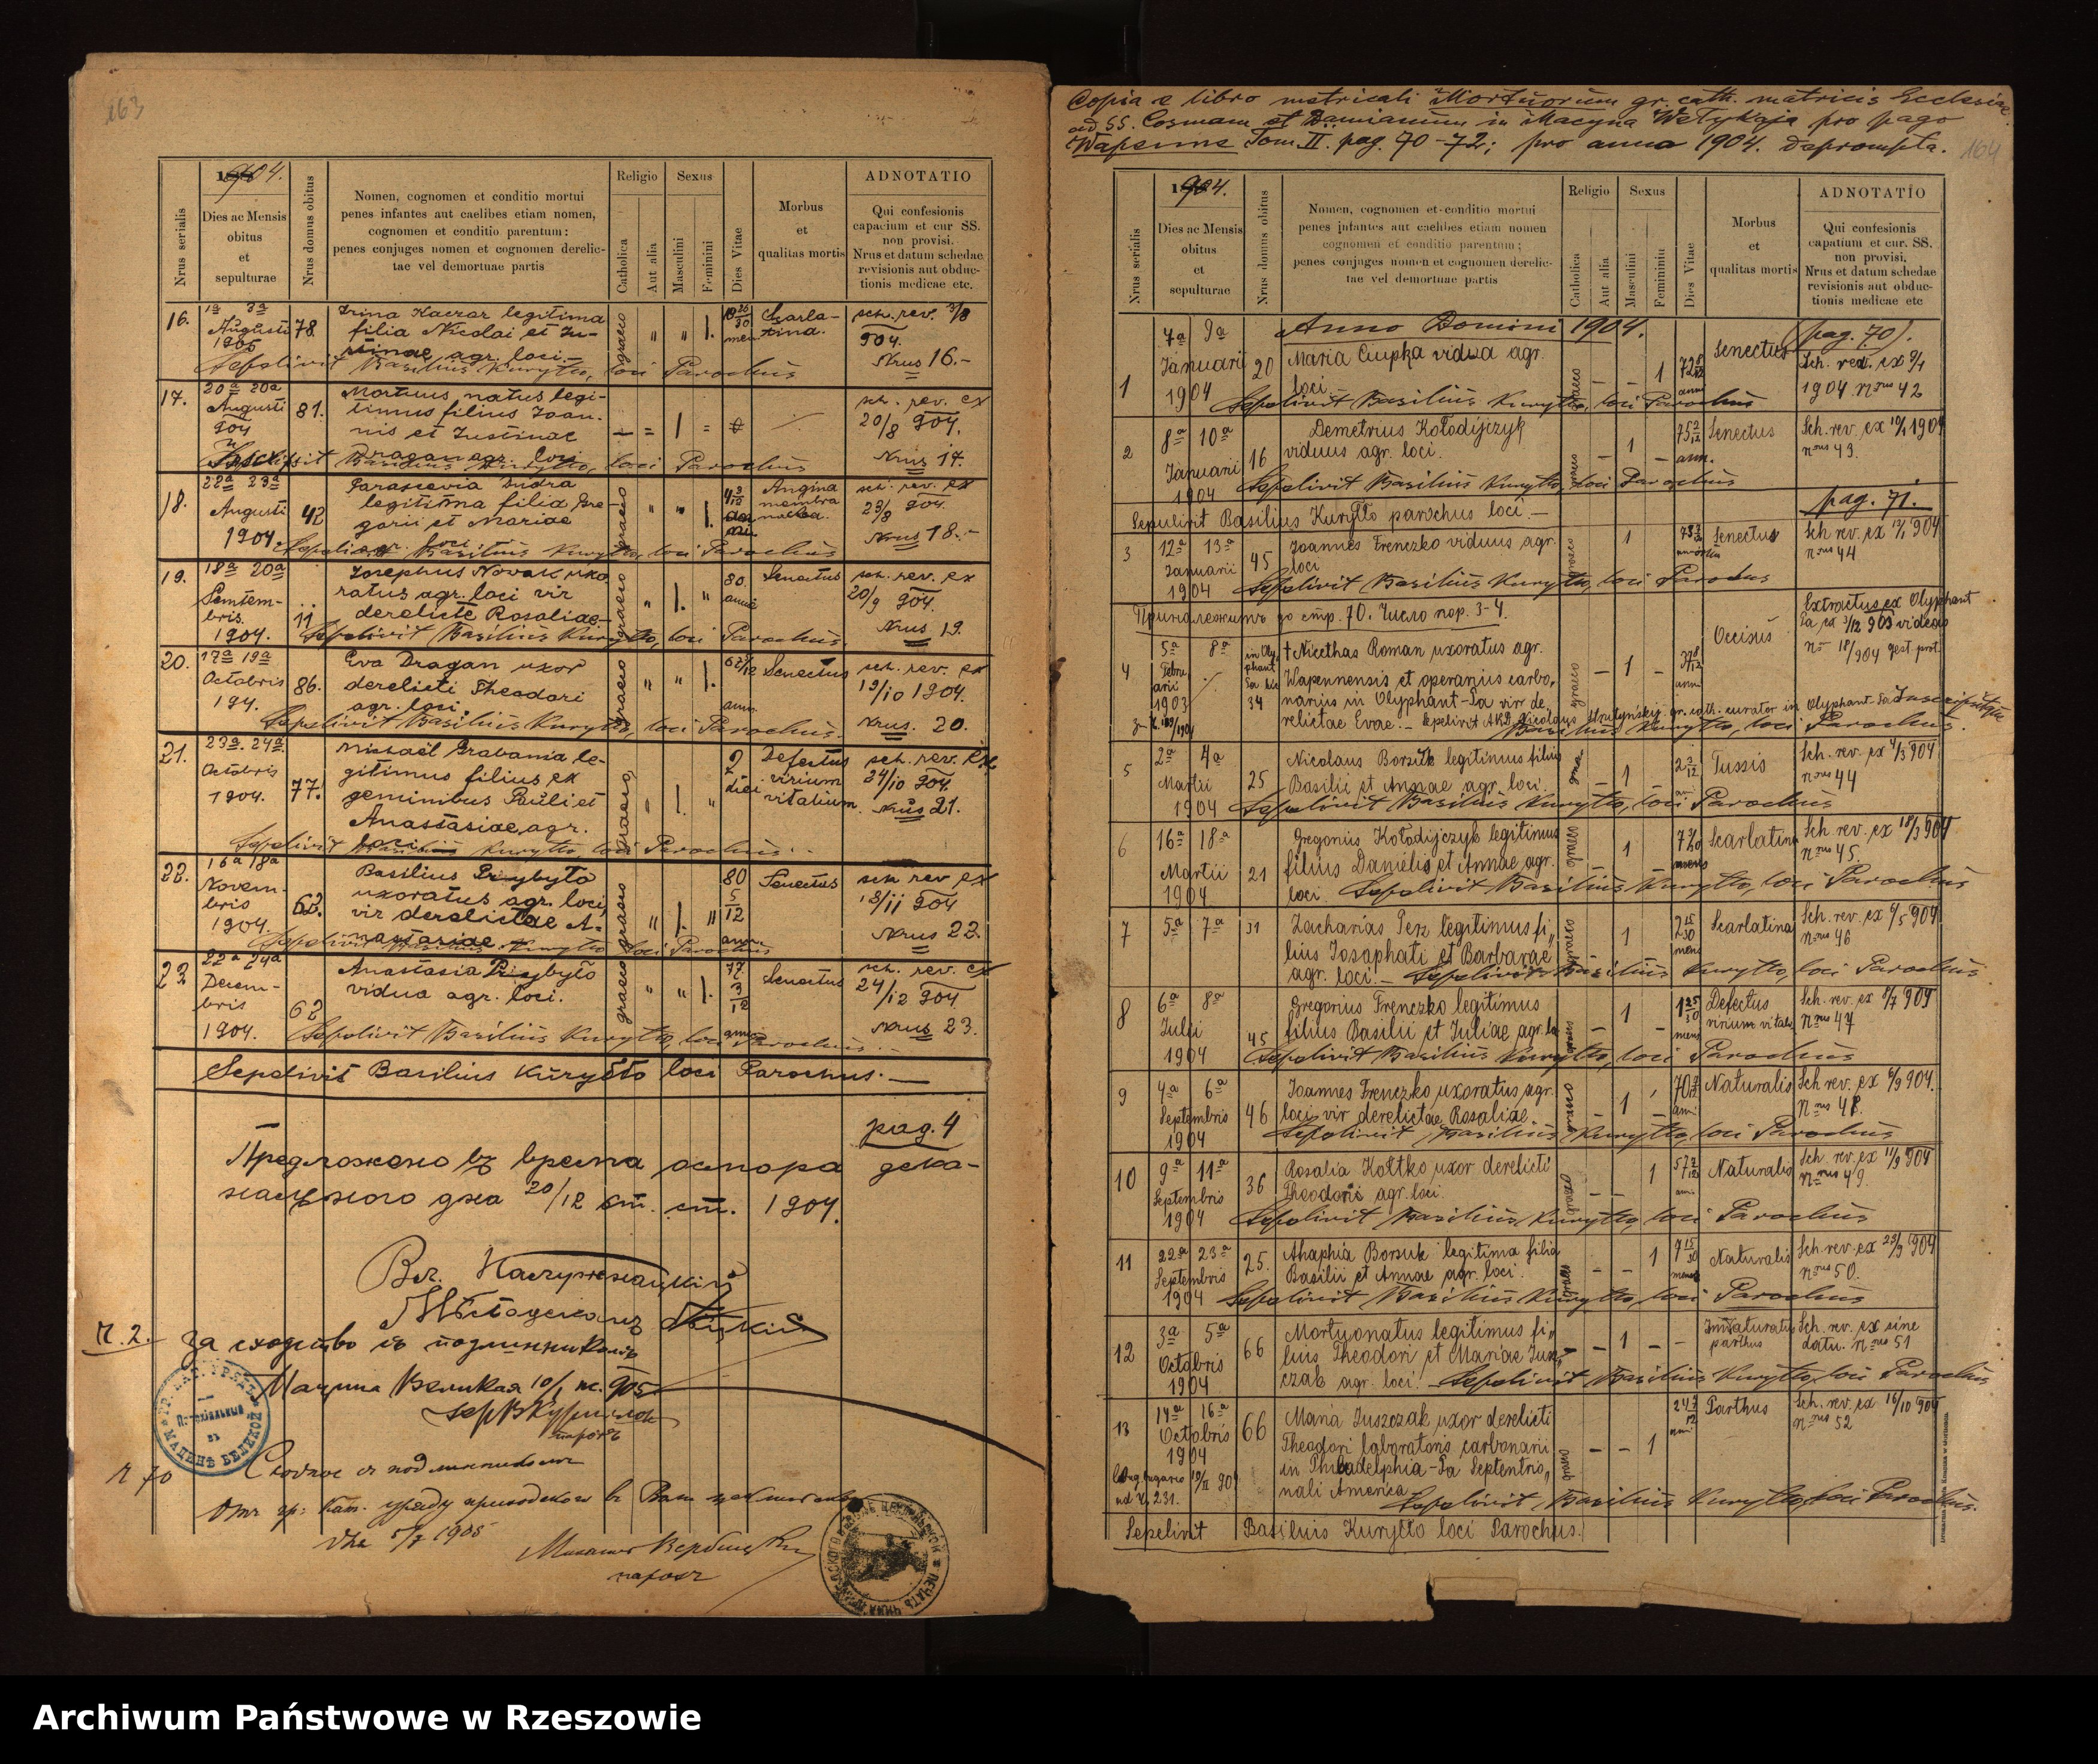 163
1904.
Nrus serialis
Dies ac Mensis
obitus
et
sepulturae
Nrus domus obitus
Nomen, cognomen et conditio mortui
penes infantes aut caelibes etiam nomen,
cognomen et conditio parentum:
penes conjuges nomen et cognomen derelic-
tae vel demortuae partis
Religio
Catholica
Aut alia
Sexus
Masculini
Feminini
Dies Vitae
Morbus
et
qualitas mortis
ADNOTATIO
Qui confesionis
capacium et cur SS.
non provisi.
Nrus et datum schedae
revisionis aut obduc-
tionis medicae etc.
16. 1a 3a Augusti 1905 78. Irina Kacrar legitima
filia Nicolai et Ju-
stinae agr. loci.
graeco Scarla-
tina. sch. rev. 3/8
904.
Nrus 16.-
Sepelivit Basilius Kuryłło, loci Parochus
17. 20a 20a Augusti 904 81. Mortuus natus legi-
timus filius Joan-
nis et Justinae
Dragan agr. loci
sch. rev. ex
20/8 904.
Nrus 17.
Inscripsit Basilius Kuryłło, loci Parochus
18. 22a 23a Augusti 1904 42 Parascevia Dudra
legitima filia Gre-
gorii et Mariae
agr. loci
graeco Angina
membra
nacea. sch. rev. ex
23/8 904.
Nrus 18.-
Sepelivit Basilius Kuryłło, loci Parochus
19. 18a 20a Septem-
bris.
1904. 11 Josephus Novak uxo
ratus agr. loci vir
derelicte Rosaliae-
graeco 80. annie Senectus sch. rev. ex
20/9 904.
Nrus 19.
Sepelivit Basilius Kuryłło, loci Parochus
20. 17a 19a Octobris 194. 86. Eva Dragan uxor
derelicti Theodori
agr. loci.
graeco Senectus sch. rev. ex
19/10 1904.
Nrus. 20.
Sepelivit Basilius Kuryłło, loci Parochus.
21. 23a. 24a. Octobris 1904. 77. Michaël Grabania le-
gitimus filius ex
geminibus Pauli et
Anastasiae, agr.
loci
graeco, 2 diei Defectus
virium
vitalium. sch. rev. Ex
24/10 904.
Nrus 21.
Sepelivit Basilius Kuryłło, loci Parochus.
22. 16a 18a Novem-
bris
1904. 62. Basilius Przybyło
uxoratus agr. loci,
vir derelictae A-
nastasiae
graeco 80 5/12 Senectus sch rev ex
18/11 904
Nrus 22.
Sepelivit Basilius Kuryłło loci Parochus
23 22a 24a Decem-
bris
1904. 62 Anastasia Przybyło
vidua agr. loci.
graeco 77. 3/12 Senectus sch. rev. ex
24/12 904
Nrus 23.
Sepelivit Basilius Kuryłło, loci Parochus.
Sepelivit Basilius Kuryłło loci Parochus.
pag. 4
Предложено въ время осмотра дека-
нального дня 20/12 ст. ст. 1904.
Ч. 2. За сходство съ подлинникомъ
Мацина Великая 10/1 н. 905
парохъ
Ч 70 Сходное съ подлинникомъ
Отъ гр: кат. уряду приходского
дня 5/7 1905
парохъ
Copia e libro metricali Mortuorum gr. cath. matricis Ecclesiae
ad SS. Cosmam et Damianum in Macyna Wełykaja pro pago
Wapenne Tom. II. pag. 70-72; pro anno 1904. deprompta.
164
1904.
Nrus serialis
Dies ac Mensis
obitus
et
sepulturae
Nrus domus obitus
Nomen, cognomen et conditio mortui
penes infantes aut caelibes etiam nomen
cognomen et conditio parentum;
penes conjuges nomen et cognomen derelic-
tae vel demortuae partis
Religio
Catholica
Aut alia
Sexus
Masculini
Feminini
Dies Vitae
Morbus
et
qualitas mortis
ADNOTATIO
Qui confesionis
capatium et cur. SS.
non provisi,
Nrus et datum schedae
revisionis aut obduc-
tionis medicae etc
Anno Domini 1904.
(pag. 70).
1 7a 9a Januarii 1904 20 Maria Ciupka vidua agr.
loci.
graeco 1 Senectus Sch. rev. ex 9/1
1904 nrus 42
Sepelivit Basilius Kuryłło, loci Parochus
2 8a 10a Januarii 1904 16 Demetrius Kołodijczyk
viduus agr. loci.
graeco 1 75 2/12 ann. Senectus Sch. rev. ex 10/1 1904
nrus 43.
Sepelivit Basilius Kuryłło, loci Parochus
pag. 71.
Sepelivit Basilius Kuryłło parochus loci.
3 12a 13a Januarii 1904 45 Joannes Frenczko viduus agr.
loci
graeco 1 Senectus Sch rev. ex 13/1 904
nrus 44
Sepelivit Basilius Kuryłło, loci Parochus
Принадлежитъ до стр. 70. Число пор. 3-4.
4 5a 8a Febru
arii
1903 in Oly
phant
Pa
34 † Nicethas Roman uxoratus agr.
Wapennensis et operarius carbo,
narius in Olyphant-Pa vir de,
relictae Evae.- Sepelivit Nicolaus Strutynskij gr. cath. curator in Olyphant Pa
graeco 1 37 8/12 anni Occisus Extractus ex Olyphant
Pa ex 3/12 903 videas
no 18/904 gest. prot.
Basilius Kuryłło, loci Parochus.
5 2a 4a Martii 1904 25 Nicolaus Borsuk legitimus filius
Basilii et Annae agr. loci.
1 2 3/12 Tussis Sch. rev. ex 4/3 904
nrus 44
Sepelivit Basilius Kuryłło, loci Parochus
6 16a 18a Martii 1904 21 Gregorius Kołodijczyk legitimus
filius Danielis et Annae agr.
loci.
graeco 1 Scarlatina Sch. rev. ex 18/3 904
nrus 45.
Sepelivit Basilius Kuryłło, loci Parochus
7 5a 7a 31 Zacharias Perz legitimus fi,
lius Josaphati et Barbarae
agr. loci.
graeco 1 2 15/30 mens Scarlatina Sch. rev. ex 7/5 904
nrus 46
Sepelivit Basilius Kuryłło, loci Parochus
8 6a 8a Julii 1904 45 Gregorius Frenczko legitimus
filius Basilii et Juliae agr. lo
1 1 25/30 mens Defectus
virium vitals Sch. rev. ex 8/7 904
nrus 47
Sepelivit Basilius Kuryłło, loci Parochus
9 4a 6a Septembris 1904 46 Joannes Frenczko uxoratus agr.
loci vir derelictae Rosaliae
graeco 1 Naturalis Sch rev. ex 6/9 904.
Nrus 48.
Sepelivit Basilius Kuryłło, loci Parochus
10 9a 11a Septembris 1904 36 Rosalia Kołtko uxor derelicti
Theodoris agr. loci.
graeco 1 57 2/12 Naturalis Sch. rev. ex 11/9 904
nrus 49.
Sepelivit Basilius Kuryłło, loci Parochus
11 22a 23a Septembris 1904 25. Ahaphia Borsuk legitima filia
Basilii et Annae agr. loci.
graeco 1 Naturalis Sch. rev. ex 23/9 904
nrus 50.
Sepelivit Basilius Kuryłło, loci Parochus
12 3a 5a Octobris 1904 66 Mortuonatus legitimus fi,
lius Theodori et Mariae Jusz,
czak agr. loci.
1 Immaturatus
parthus Sch. rev. ex sine
datu. nrus 51
Sepelivit Basilius Kuryłło, loci Parochus
13 14a 16a Octobris 1904 66 Maria Juszczak uxor derelicti
Theodori laboratoris carbonarii
in Philadelphia-Pa Septentrio,
nali America.
graeco 1 24 7/12 anni Parthus Sch. rev. ex 16/10 904
nrus 52
Sepelivit Basilius Kuryłło, loci Parochus.
Sepelivit Basilius Kuryłło loci Parochus.
Archiwum Państwowe w Rzeszowie